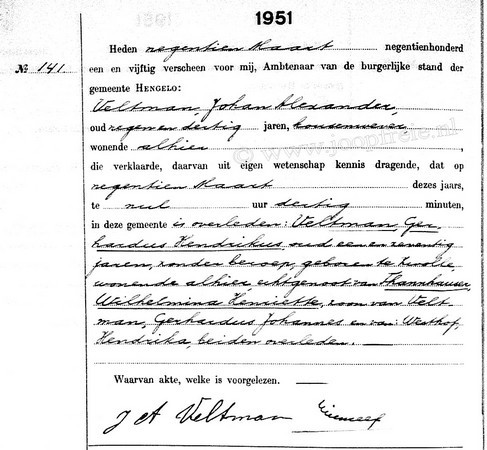 1951
Heden negentien Maart negentienhonderd
№ 141.
een en vijftig verscheen voor mij, Ambtenaar van de burgerlijke stand der
gemeente HENGELO:
Veltman, Johan Alexander,
oud negen en dertig jaren,
wonende alhier,
die verklaarde, daarvan uit eigen wetenschap kennis dragende, dat op
negentien Maart dezes jaars,
te nul uur dertig minuten,
in deze gemeente is overleden: Veltman Ger-
hardus Hendrikus oud een en zeventig
jaren, zonder beroep, geboren te Zwolle,
wonende alhier, echtgenoot van Thannhauser,
Wilhelmina Henriette, zoon van Velt-
man, Gerhardus Johannes en van: Westhof,
Hendrika, beiden overleden.
Waarvan akte, welke is voorgelezen.
J A Veltman
© www.joopfreie.nl